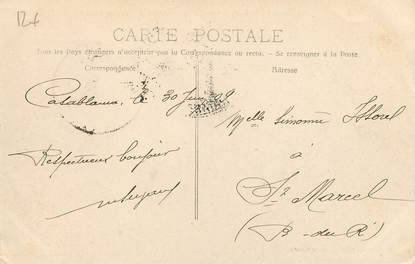 12€
CARTE POSTALE
Tous les Pays étrangers n'acceptent pas la Correspondance au recto. - Se renseigner à la Poste.
Correspondance
Adresse
Casablanca, 30 Juin 09
Respectueux bonjour
Melle Simonne
à
St Marcel
(B-du-R)